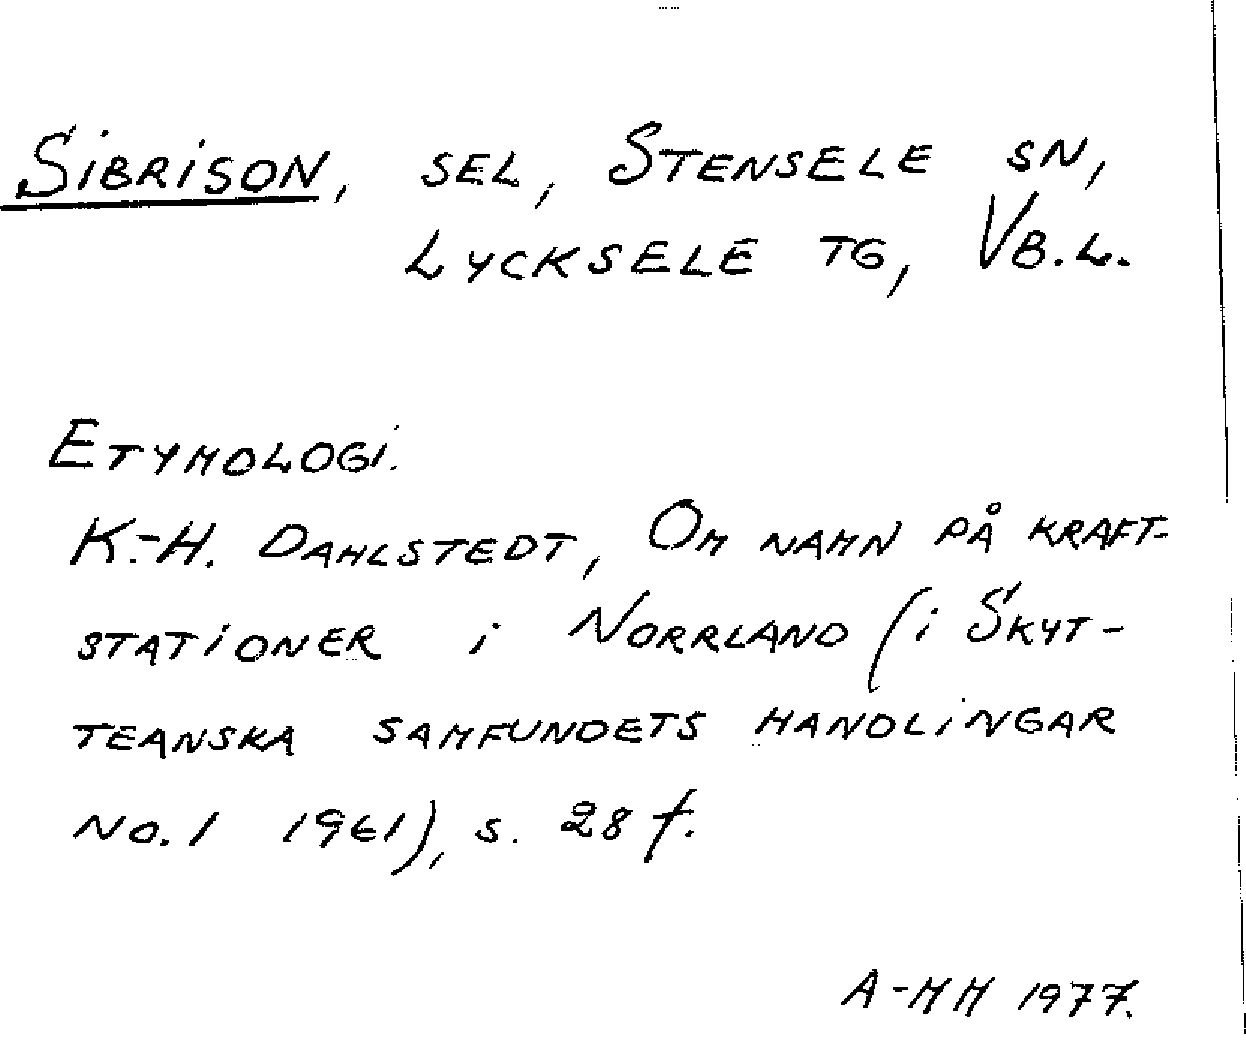 Sibrison, sel, Stensele sn,
Lycksele tg, Vb.L.
Etymologi.
K.-H. Dahlstedt, Om namn på kraft-
stationer i Norrland (i Skyt-
teanska samfundets handlingar
No.1 1961), s. 28 f.
A-MM 1977.